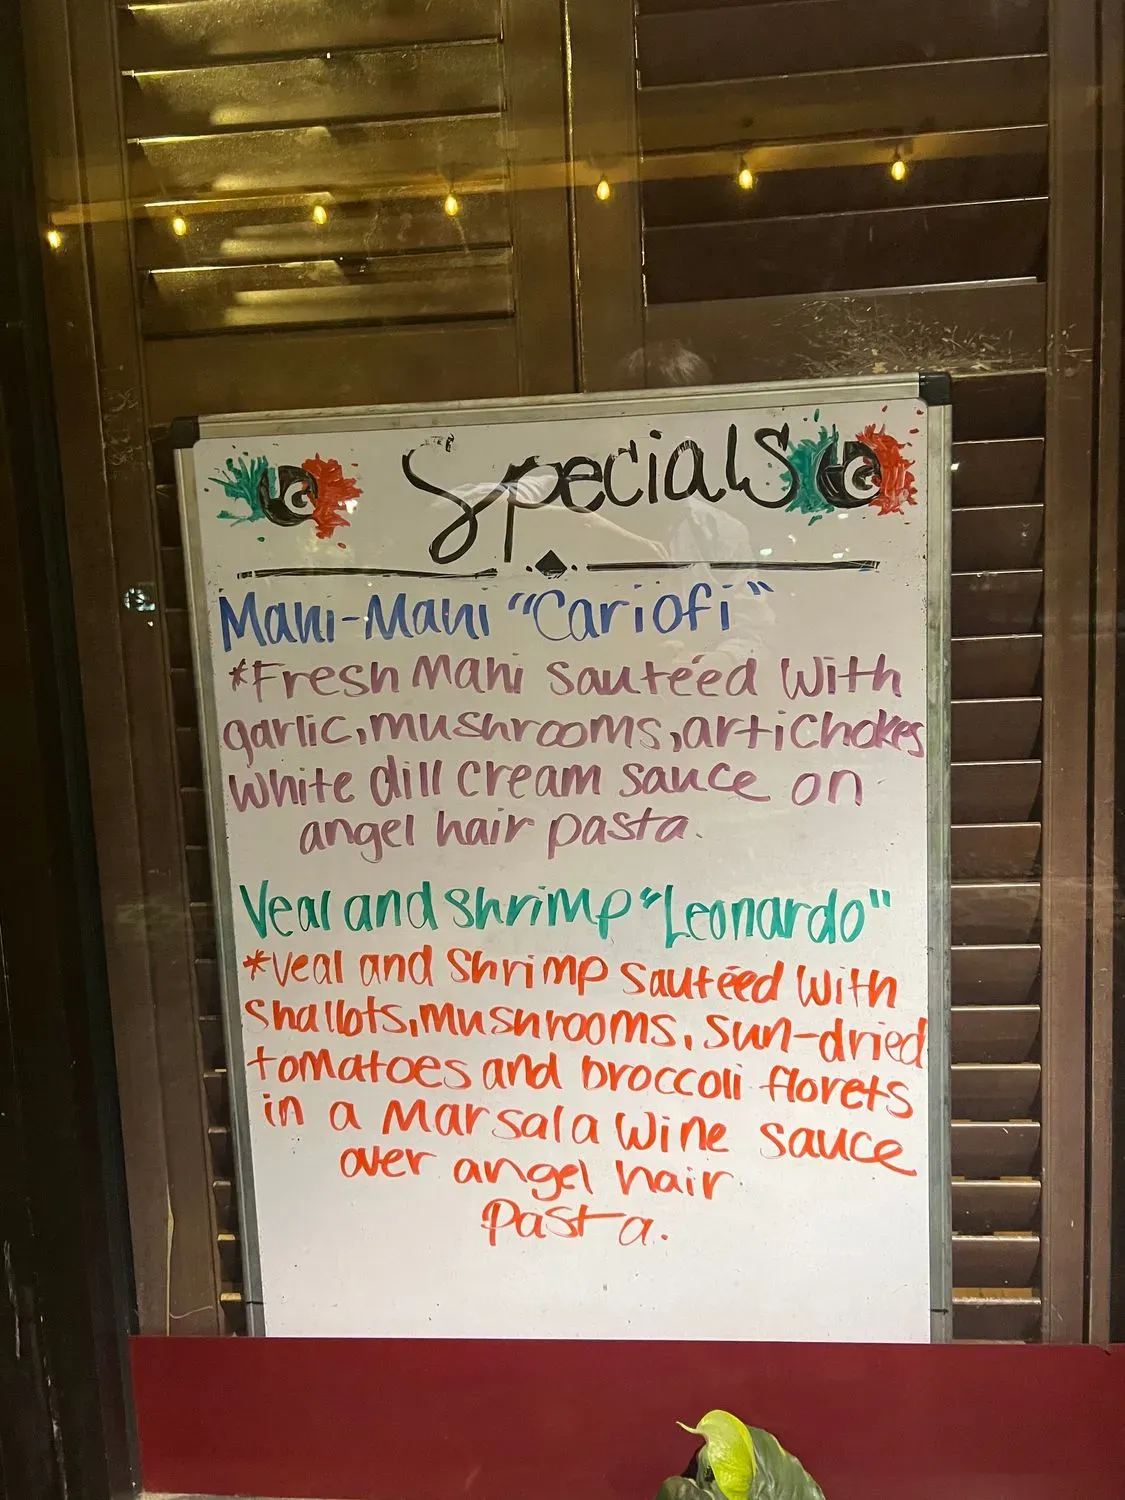 G Specials G
Mahi-Mahi "Cariofi"
*Fresh Mahi sautéed with
garlic, mushrooms, artichokes
white dill cream sauce on
angel hair pasta.
Veal and shrimp "Leonardo"
*veal and shrimp sautéed with
shallots, mushrooms, sun-dried
tomatoes and broccoli florets
in a Marsala wine sauce
over angel hair
pasta.